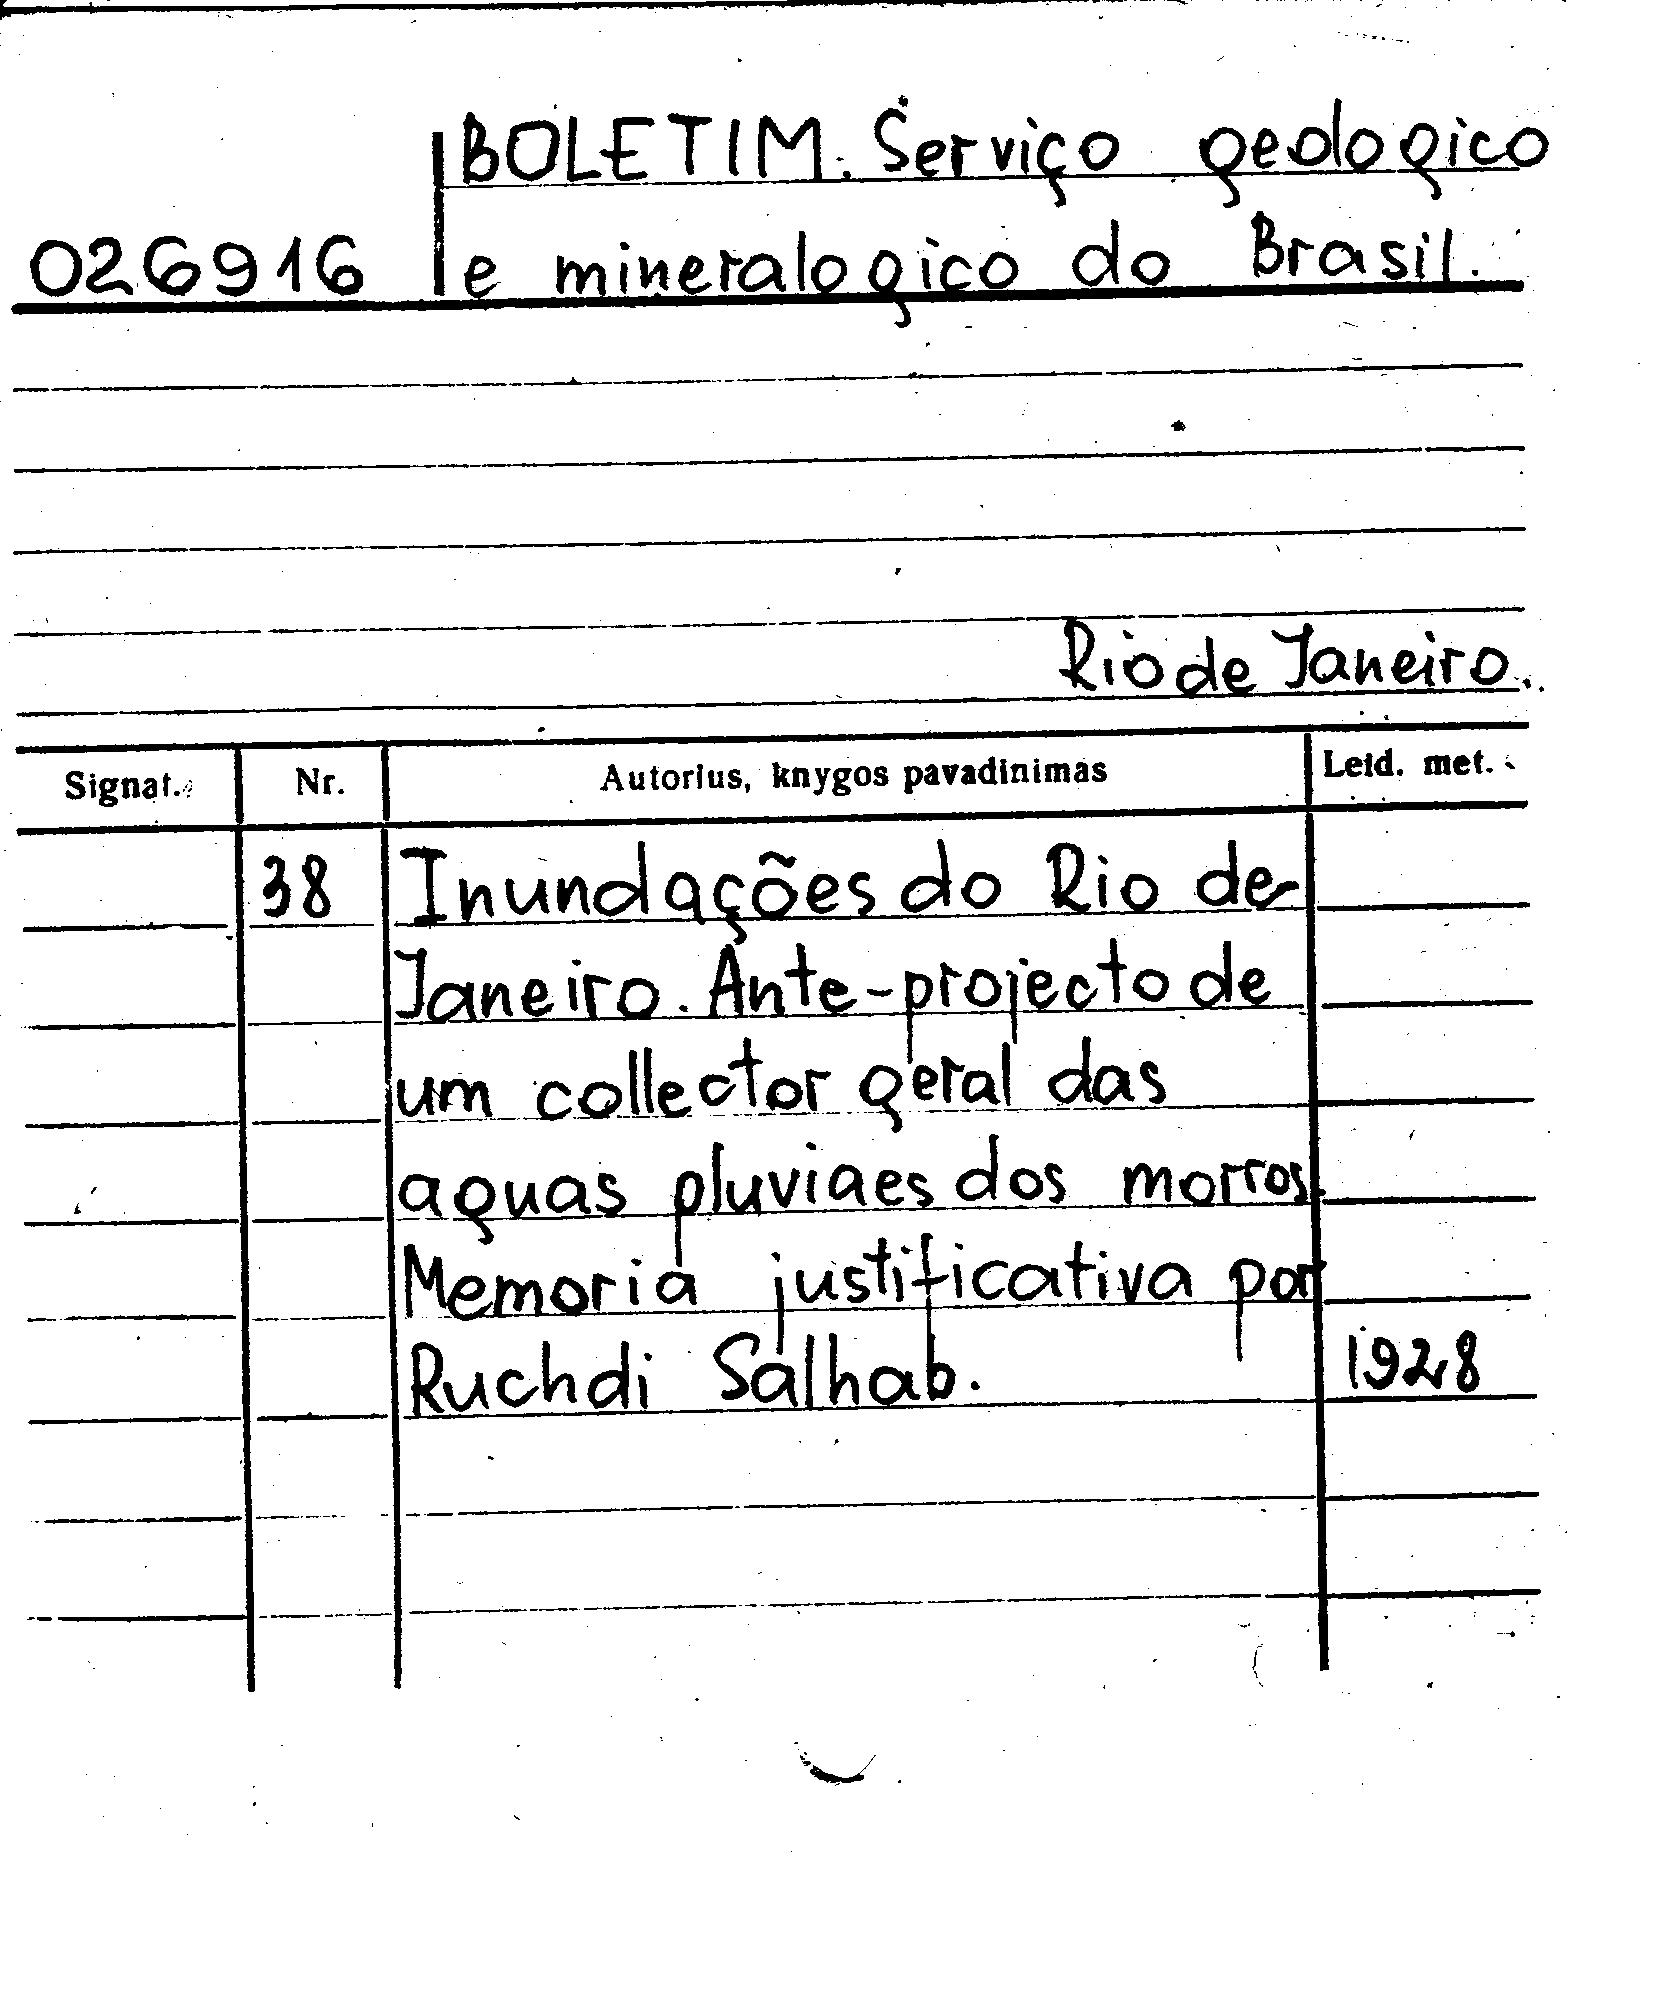 BOLETIM. Serviço geologico
026916 e mineralogico do Brasil.
Rio de Janeiro.
Signat. Nr. Autorius, knygos pavadinimas Leid. met.
38 Inundações do Rio de
Janeiro. Ante-projecto de
um collector geral das
aguas pluviaes dos morros.
Memoria justificativa por
Ruchdi Salhab. 1928